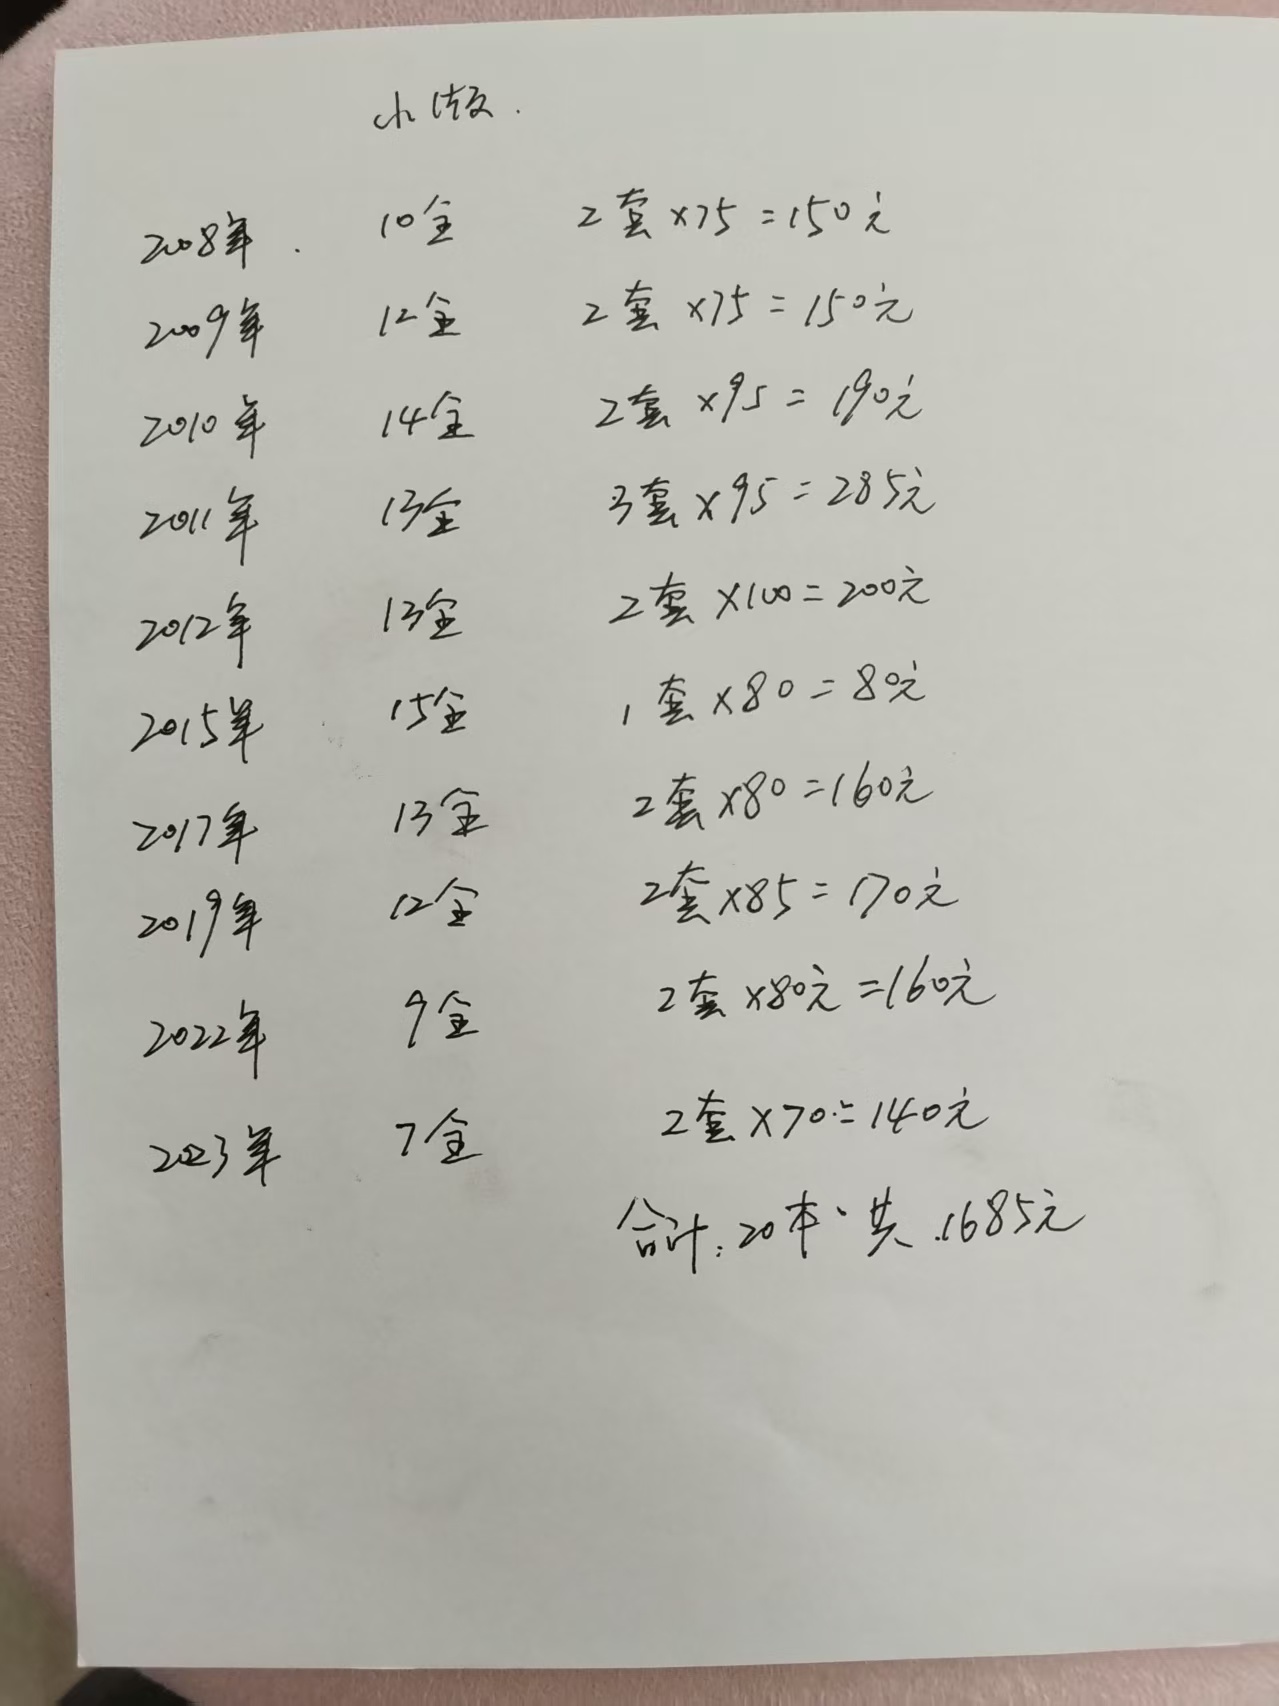 小版.
2008年. 10全 2套×75=150元
2009年 12全 2套×75=150元
2010年 14全 2套×95=190元
2011年 13全 3套×95=285元
2012年 13全 2套×100=200元
2015年 15全 1套×80=80元
2017年 13全 2套×80=160元
2019年 12全 2套×85=170元
2022年 9全 2套×80元=160元
2023年 7全 2套×70=140元
合计:20本、共.1685元